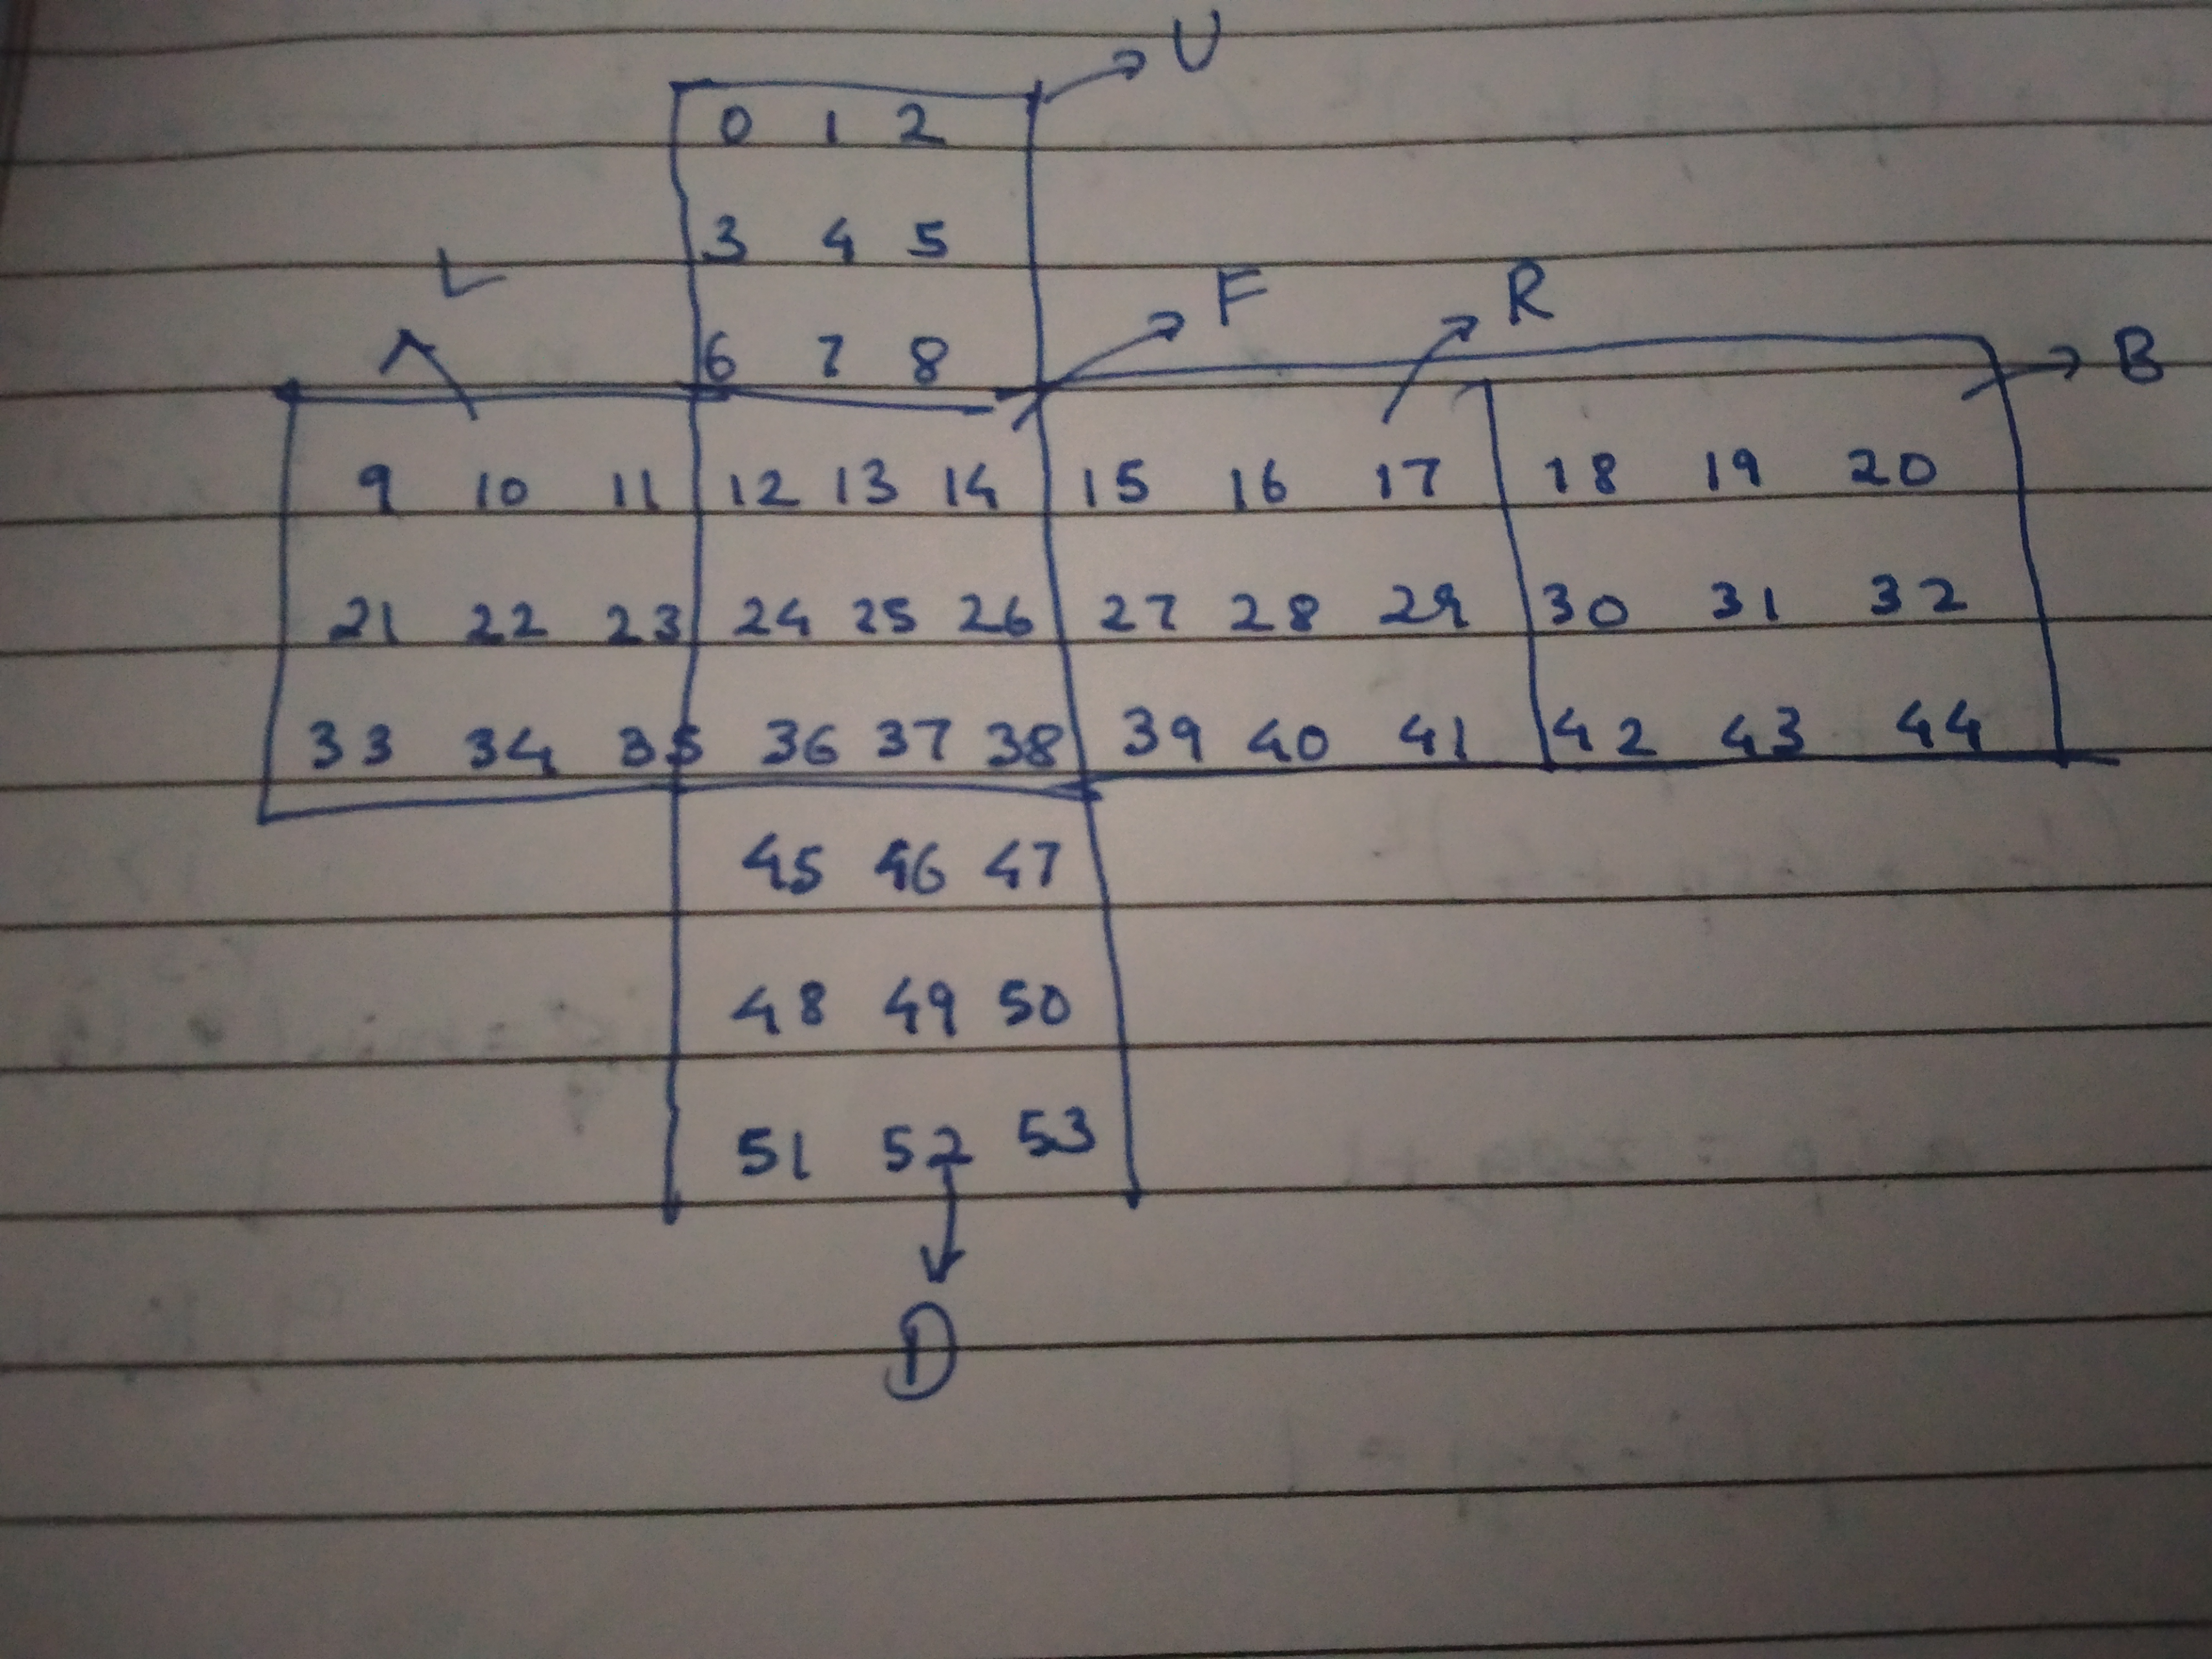 U
0 1 2
3 4 5
L F R
6 7 8 B
9 10 11 12 13 14 15 16 17 18 19 20
21 22 23 24 25 26 27 28 29 30 31 32
33 34 35 36 37 38 39 40 41 42 43 44
45 46 47
48 49 50
51 52 53
D